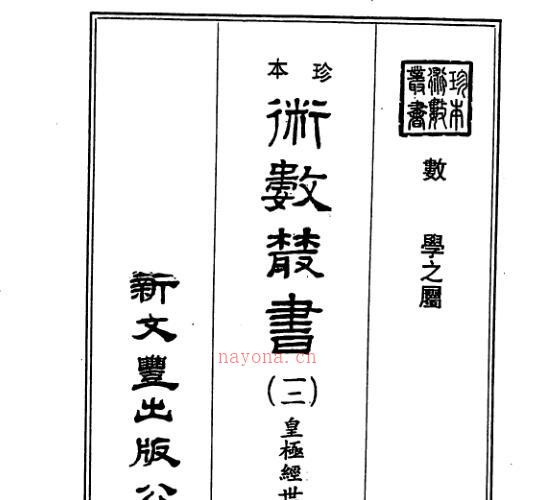 珍本
術數
叢書
數學之屬
珍本
術數叢書
(三)
皇極經世
新文豐出版公
nayona.cn